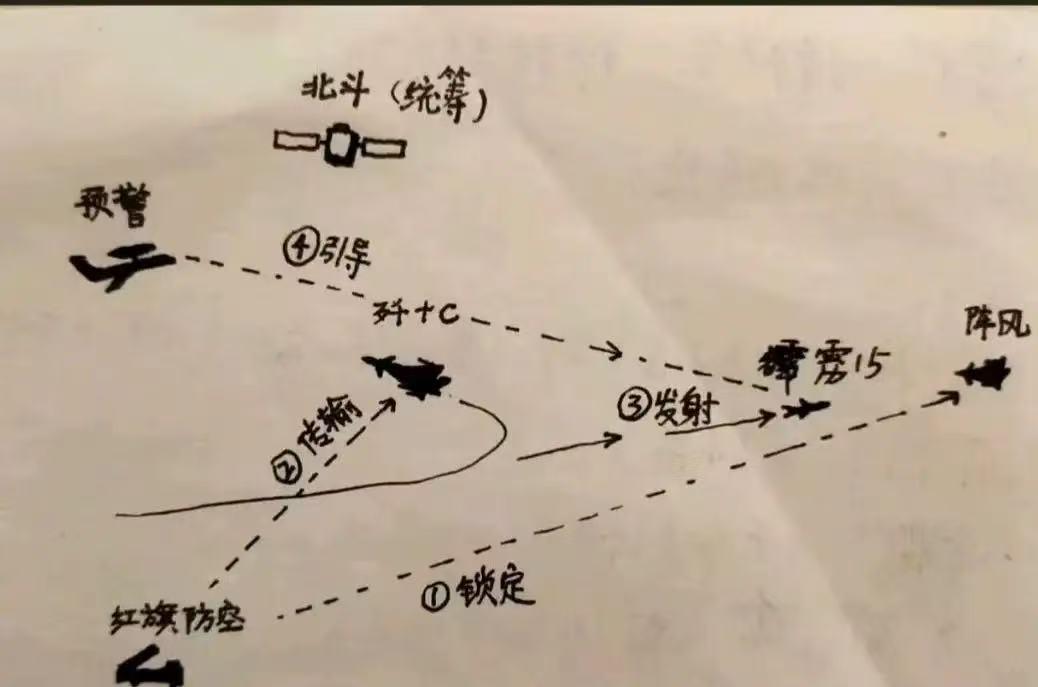 北斗（统筹）
预警
④引导
歼十C
阵风
霹雳15
③发射
②传输
①锁定
红旗防空